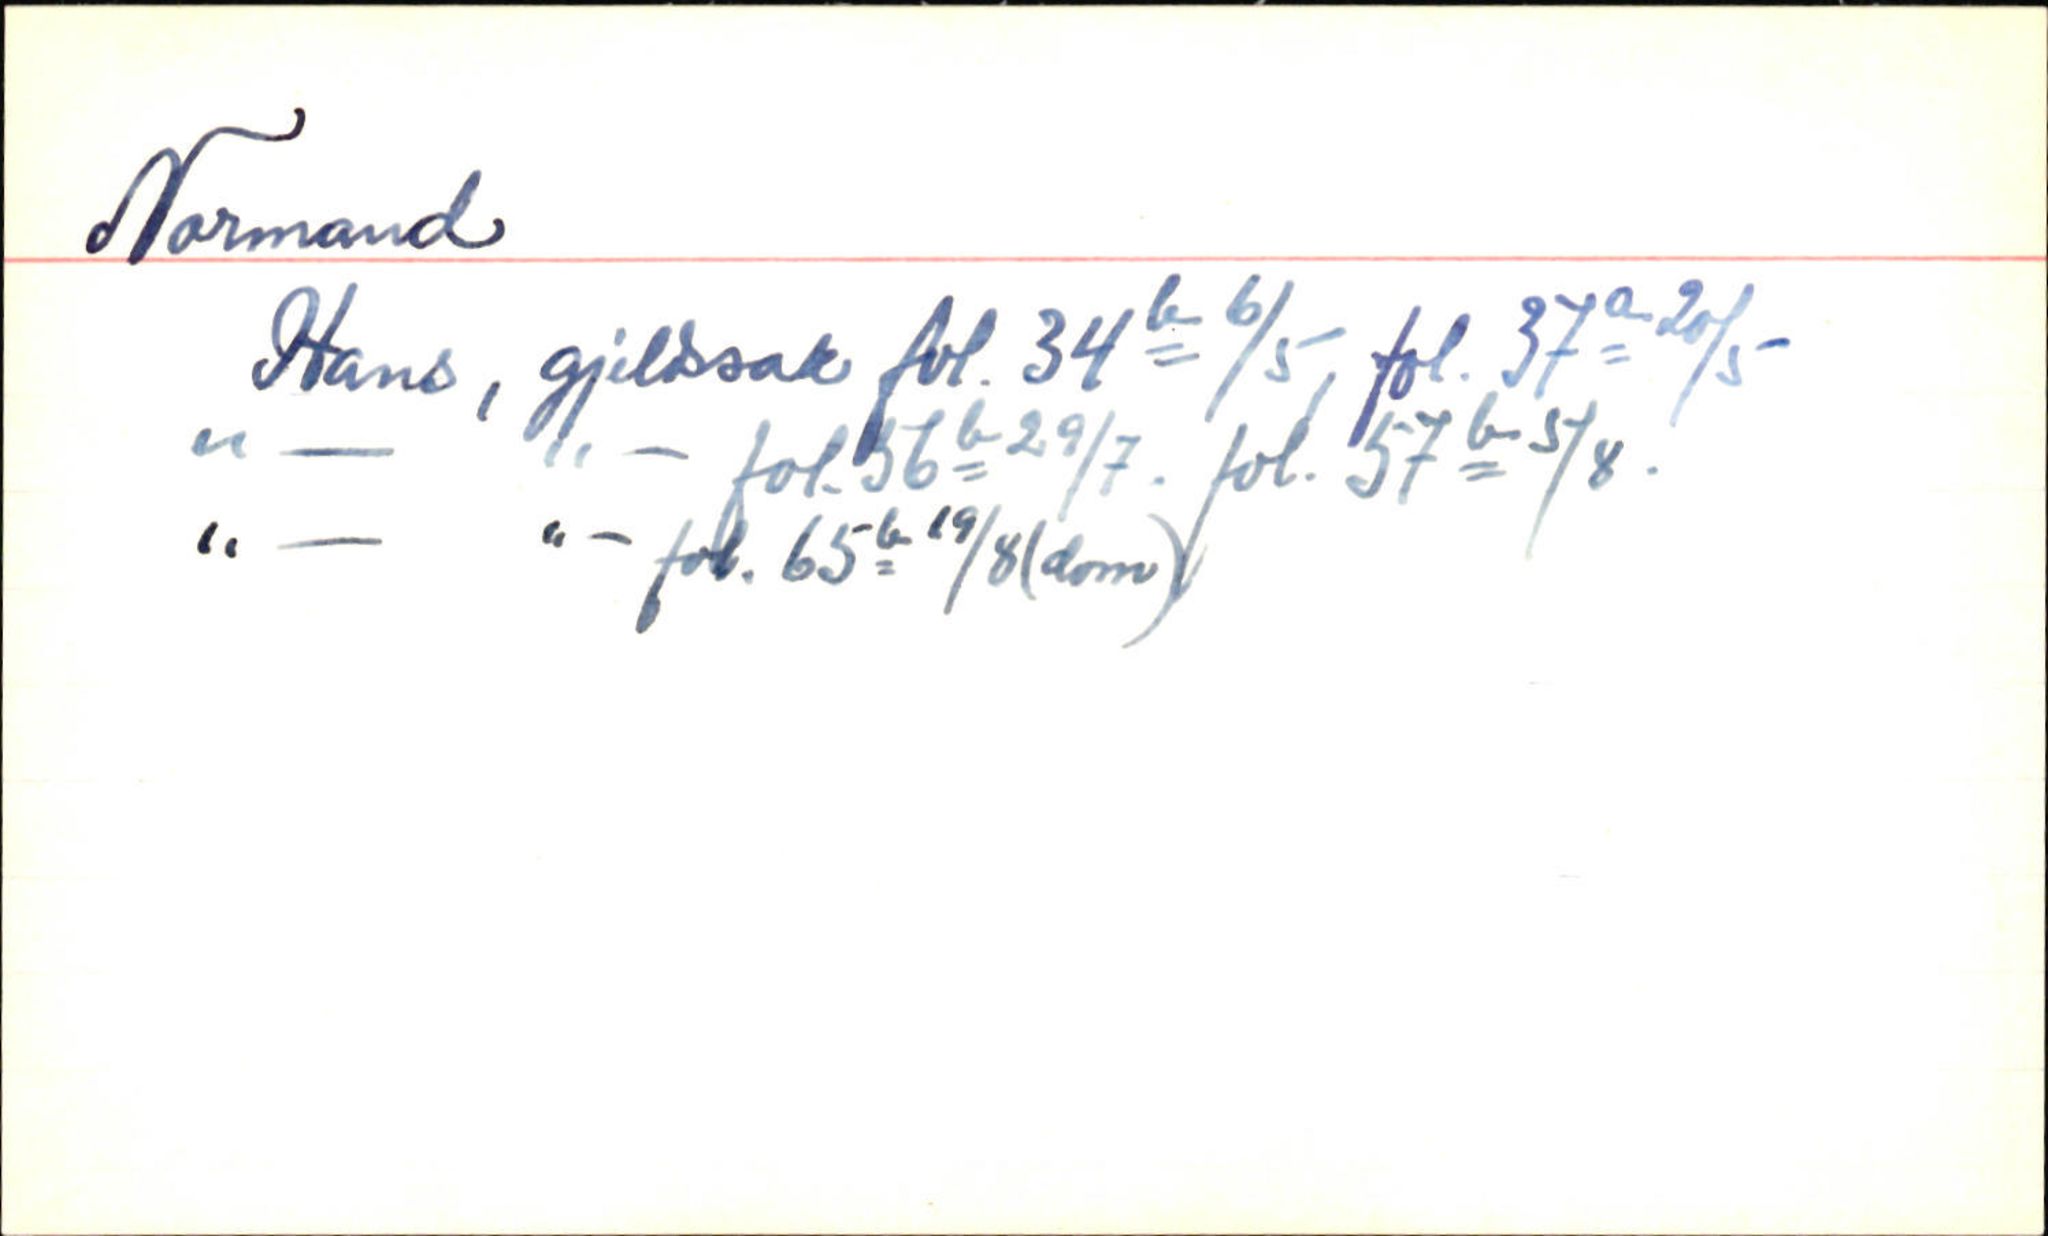 Normand
Hans, gjeldssak fol. 34b 6/5, fol. 37a 20/5
" — " — fol. 56b 29/7. fol. 57b 5/8.
" — " — fol. 65b 19/8 (dom)